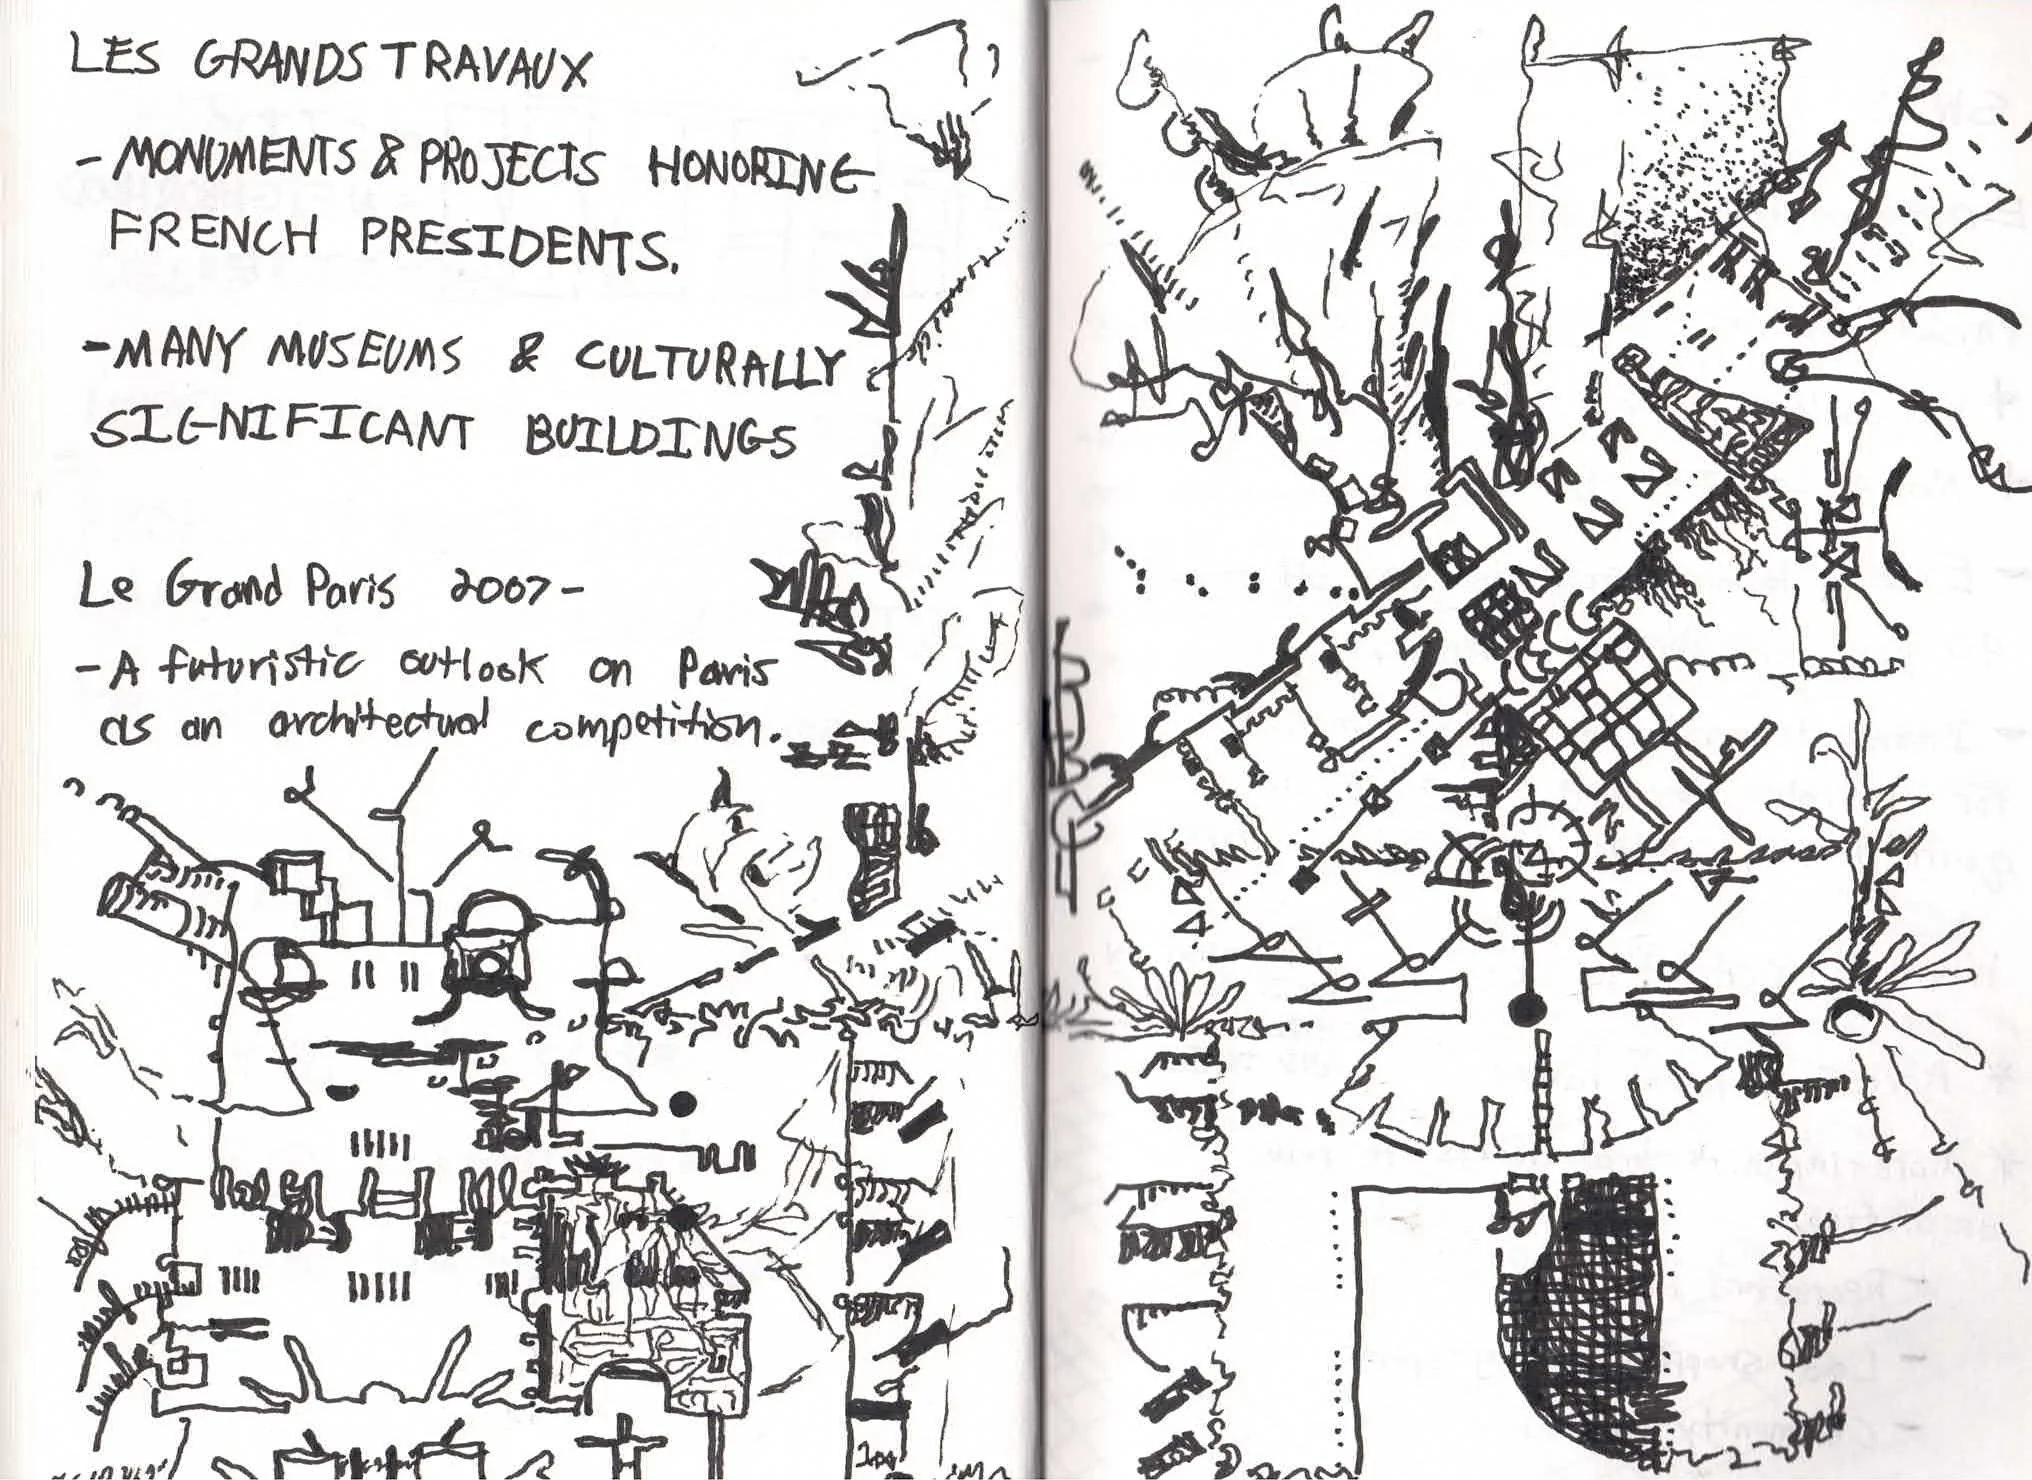 LES GRANDS TRAVAUX
- MONUMENTS & PROJECTS HONORING
FRENCH PRESIDENTS.
- MANY MUSEUMS & CULTURALLY
SIGNIFICANT BUILDINGS
Le Grand Paris 2007 -
- A futuristic outlook on Paris
as an architectual competition.